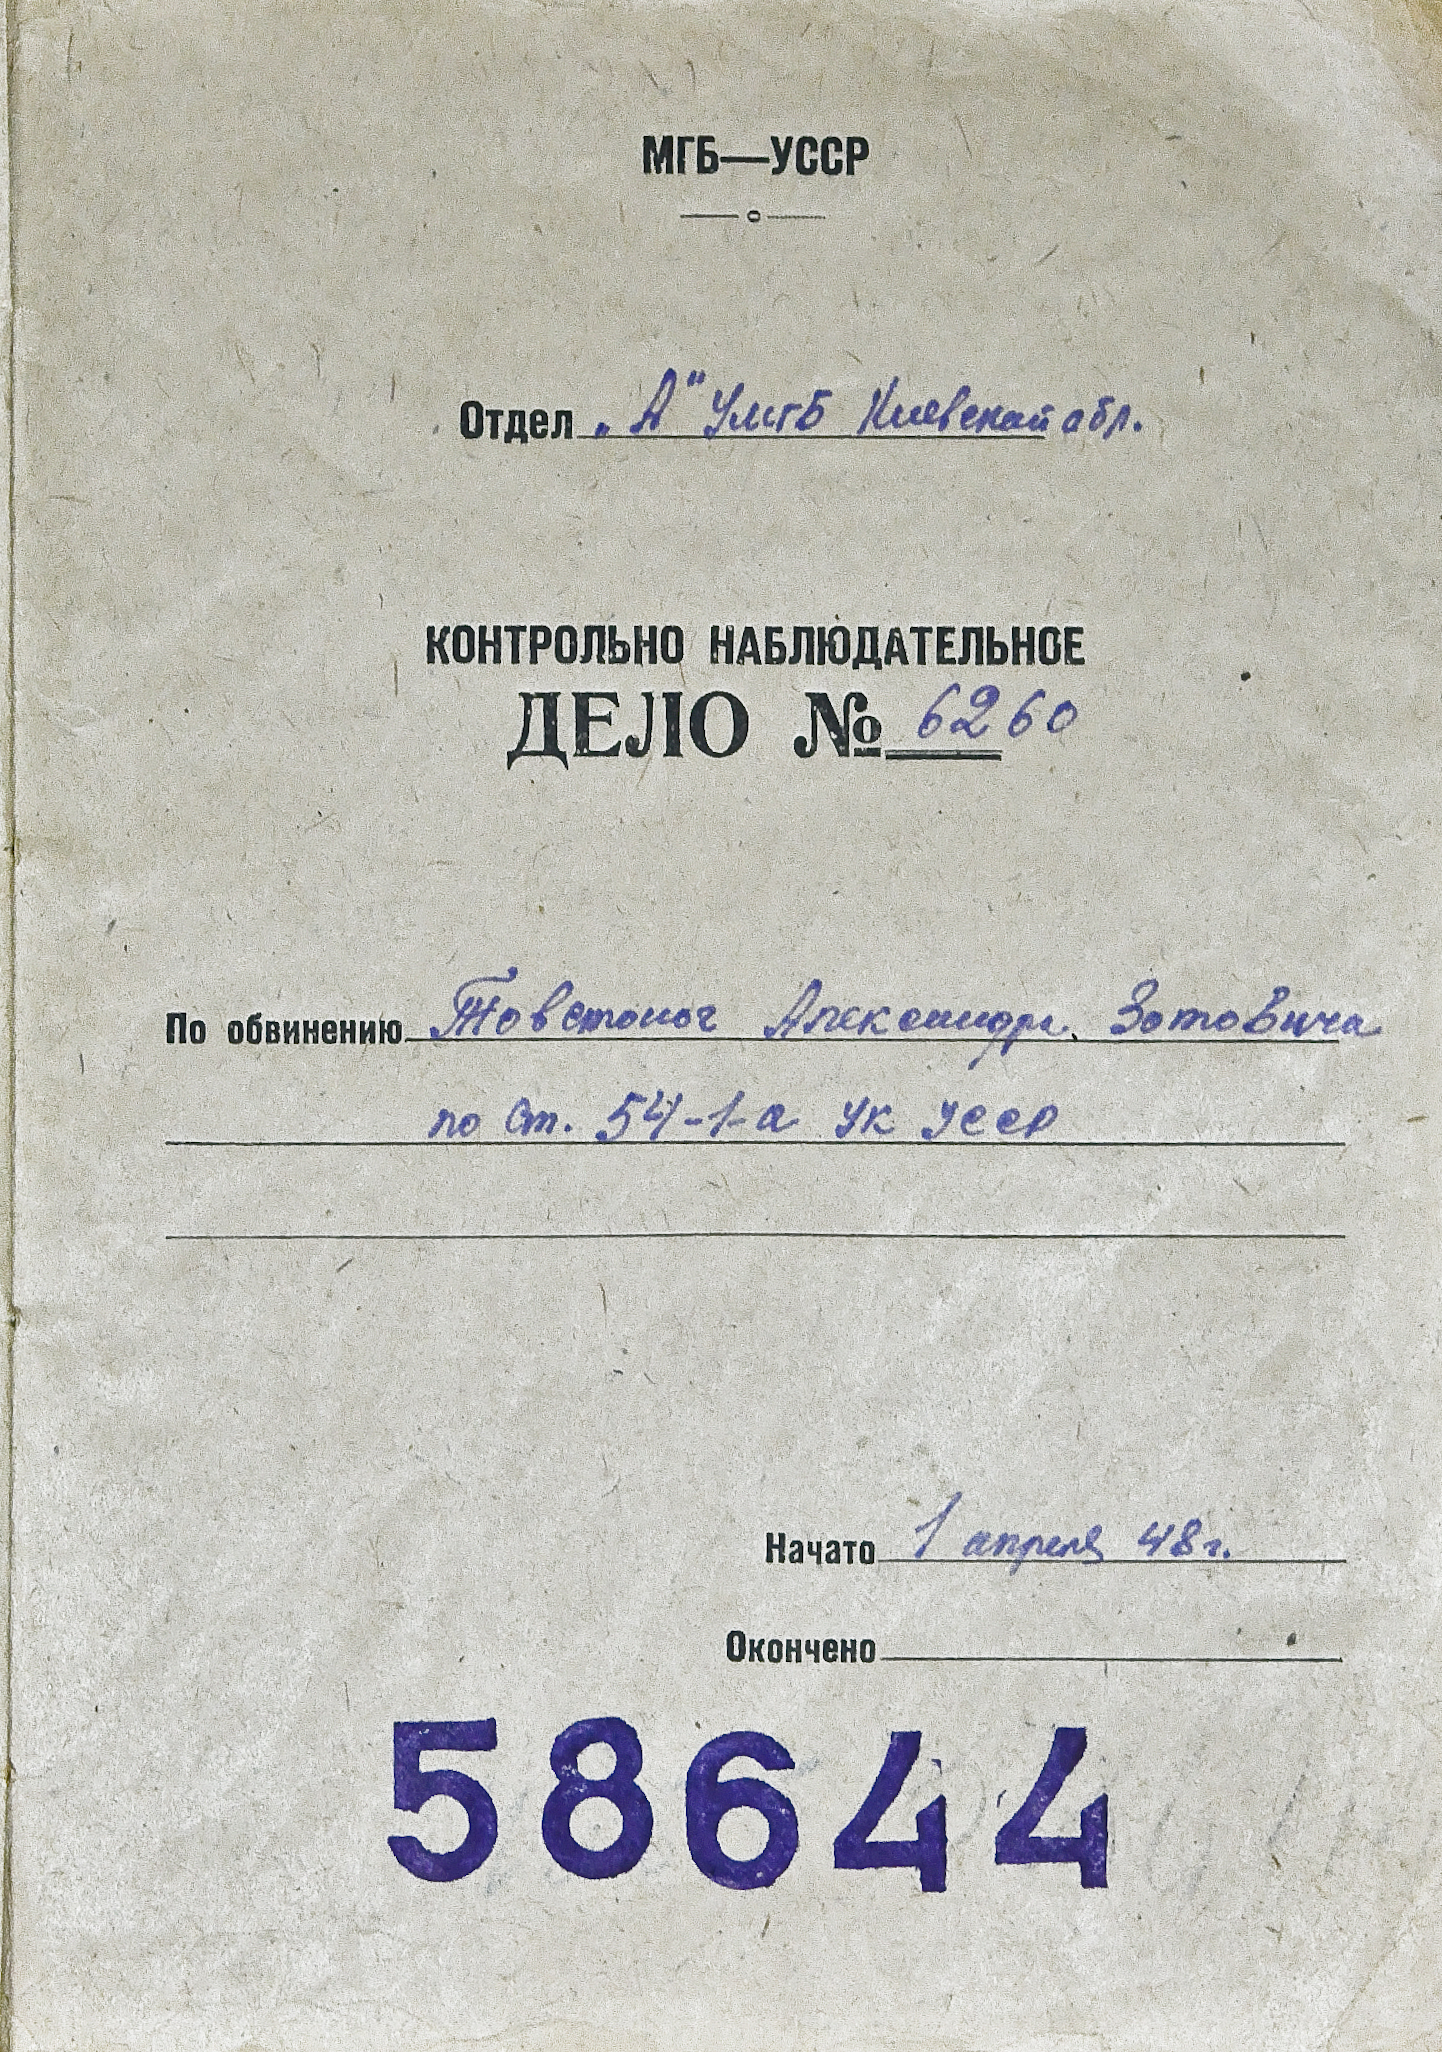 МГБ—УССР
Отдел „А" УМГБ Киевской обл.
КОНТРОЛЬНО НАБЛЮДАТЕЛЬНОЕ
ДЕЛО № 6260
По обвинению Товстоног Александра Зотовича
по ст. 54-1-а УК УССР
Начато 1 апреля 48 г.
Окончено
58644